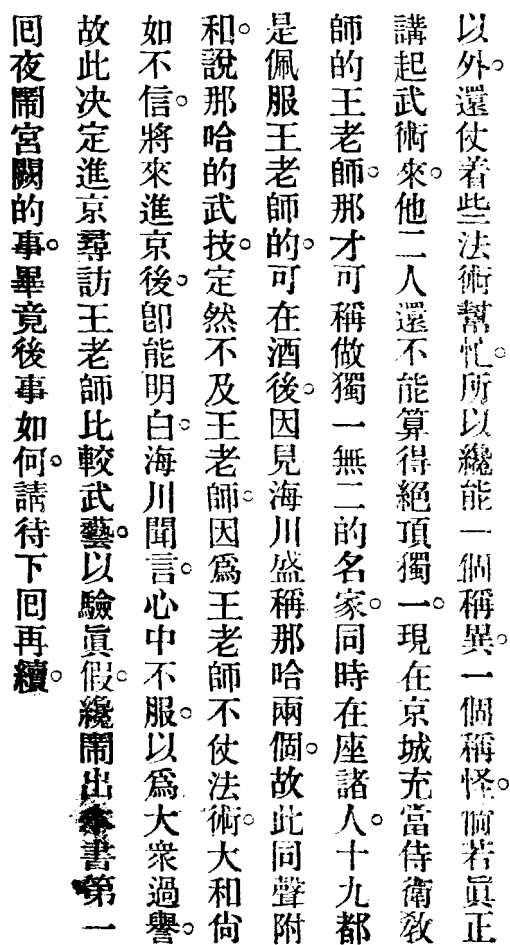 以外。還仗着些法術幫忙。所以纔能一個稱異。一個稱怪。倘若眞正
講起武術來。他二人還不能算得絕頂獨一。現在京城充當侍衛敎
師的王老師。那才可稱做獨一無二的名家。同時在座諸人。十九都
是佩服王老師的。可在酒後。因見海川盛稱那哈兩個。故此同聲附
和。說那哈的武技。定然不及王老師。因爲王老師不仗法術。大和尙
如不信。將來進京後。卽能明白。海川聞言。心中不服。以爲大衆過譽。
故此决定進京尋訪王老師比較武藝。以驗眞假。纔鬧出本書第一
囘夜鬧宮闕的事。畢竟後事如何。請待下囘再續。